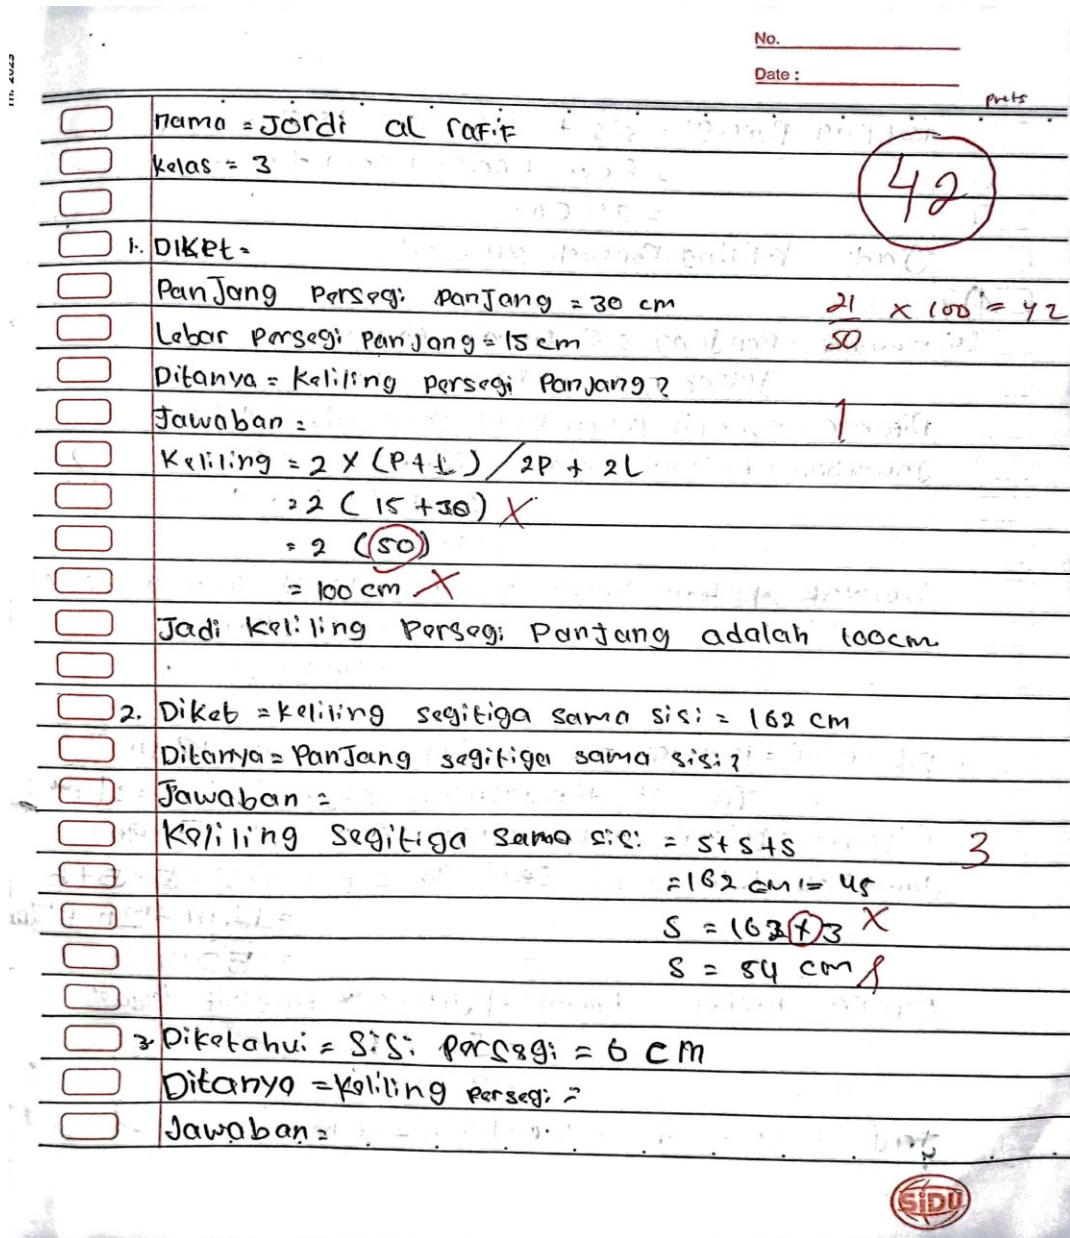 Th. 2023
No.
Date :
prets
nama = Jordi al rafif
kelas = 3
42
1. Diket =
Panjang Persegi panjang = 30 cm
21/50 x 100 = 42
Lebar Persegi Panjang = 15 cm
Ditanya = Keliling persegi Panjang?
Jawaban =
1
Keliling = 2 x (P+L) / 2P + 2L
= 2 ( 15 + 30) X
= 2 (50)
= 100 cm X
Jadi keliling Persegi Panjang adalah 100cm
2. Diket = keliling segitiga sama sisi = 162 cm
Ditanya = Panjang segitiga sama sisi?
Jawaban =
Keliling Segitiga sama sisi = S+S+S
3
= 162 cm = 4s
S = 162 + 3 X
S = 54 cm
3. Diketahui = Sisi persegi = 6 cm
Ditanya = Keliling persegi =
Jawaban =
SiDU